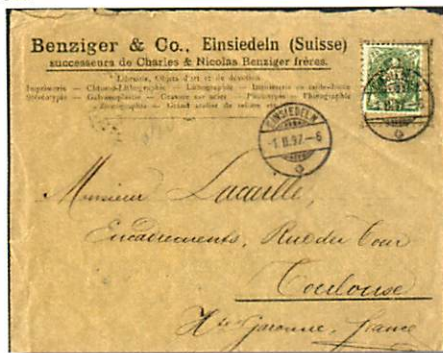 Benziger & Co., Einsiedeln (Suisse)
successeurs de Charles & Nicolas Benziger frères.
Librairie, Objets d'art et de dévotion.
Imprimerie — Chromo-Lithographie — Lithographie — Imprimerie en taille-douce
Stéréotypie — Galvanoplastie — Gravure sur acier — Phototypie — Photographie
Zincographie — Grand atelier de reliure etc.
EINSIEDELN
-1.II.97.-6
Monsieur
Encadrements, Rue du Tour
Toulouse
Hte Garonne, France